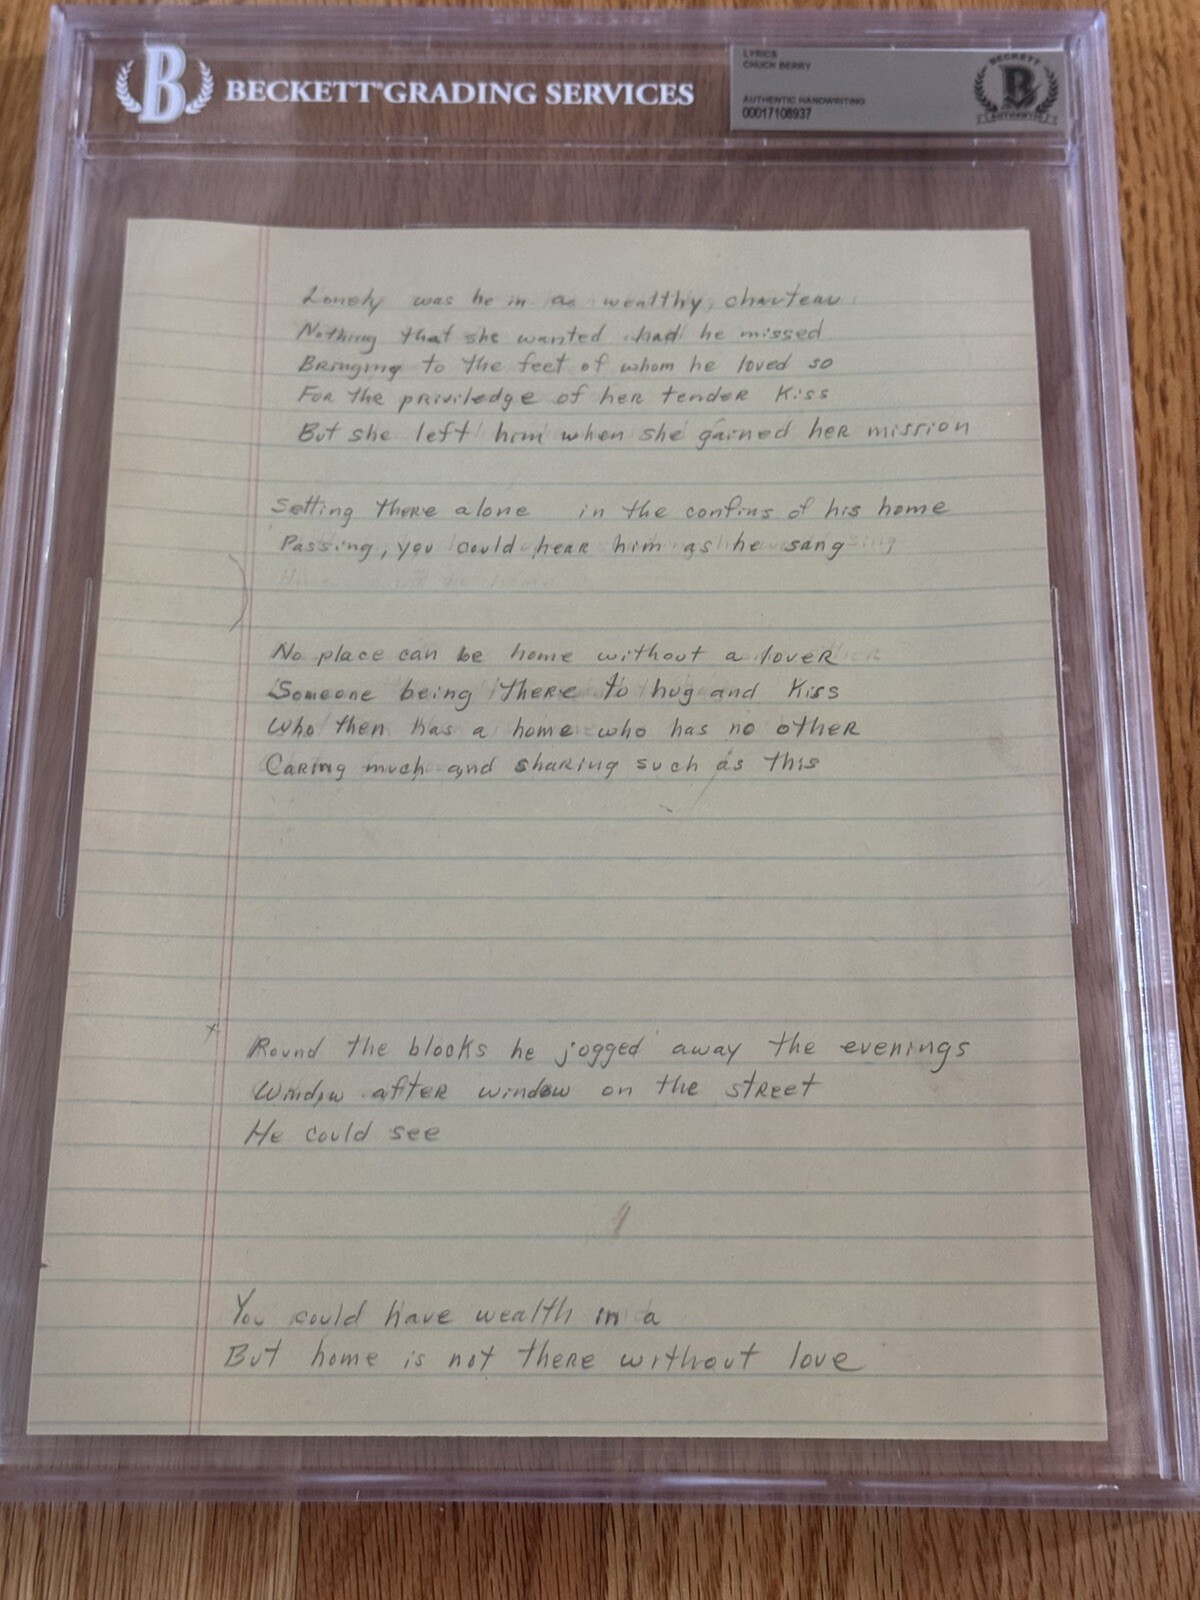 B
BECKETT GRADING SERVICES
LYRICS
CHUCK BERRY
AUTHENTIC HANDWRITING
00017108937
BECKETT
B
AUTHENTIC
Lonely was he in a wealthy, chauteau
Nothing that she wanted had he missed
Bringing to the feet of whom he loved so
For the priviledge of her tender kiss
But she left him when she gained her mission
Setting there alone in the confins of his home
Passing, you could hear him as he sang
No place can be home without a lover
Someone being there to hug and kiss
Who then has a home who has no other
Caring much and sharing such as this
x
Round the blocks he jogged away the evenings
Window after window on the street
He could see
You could have wealth in a
But home is not there without love